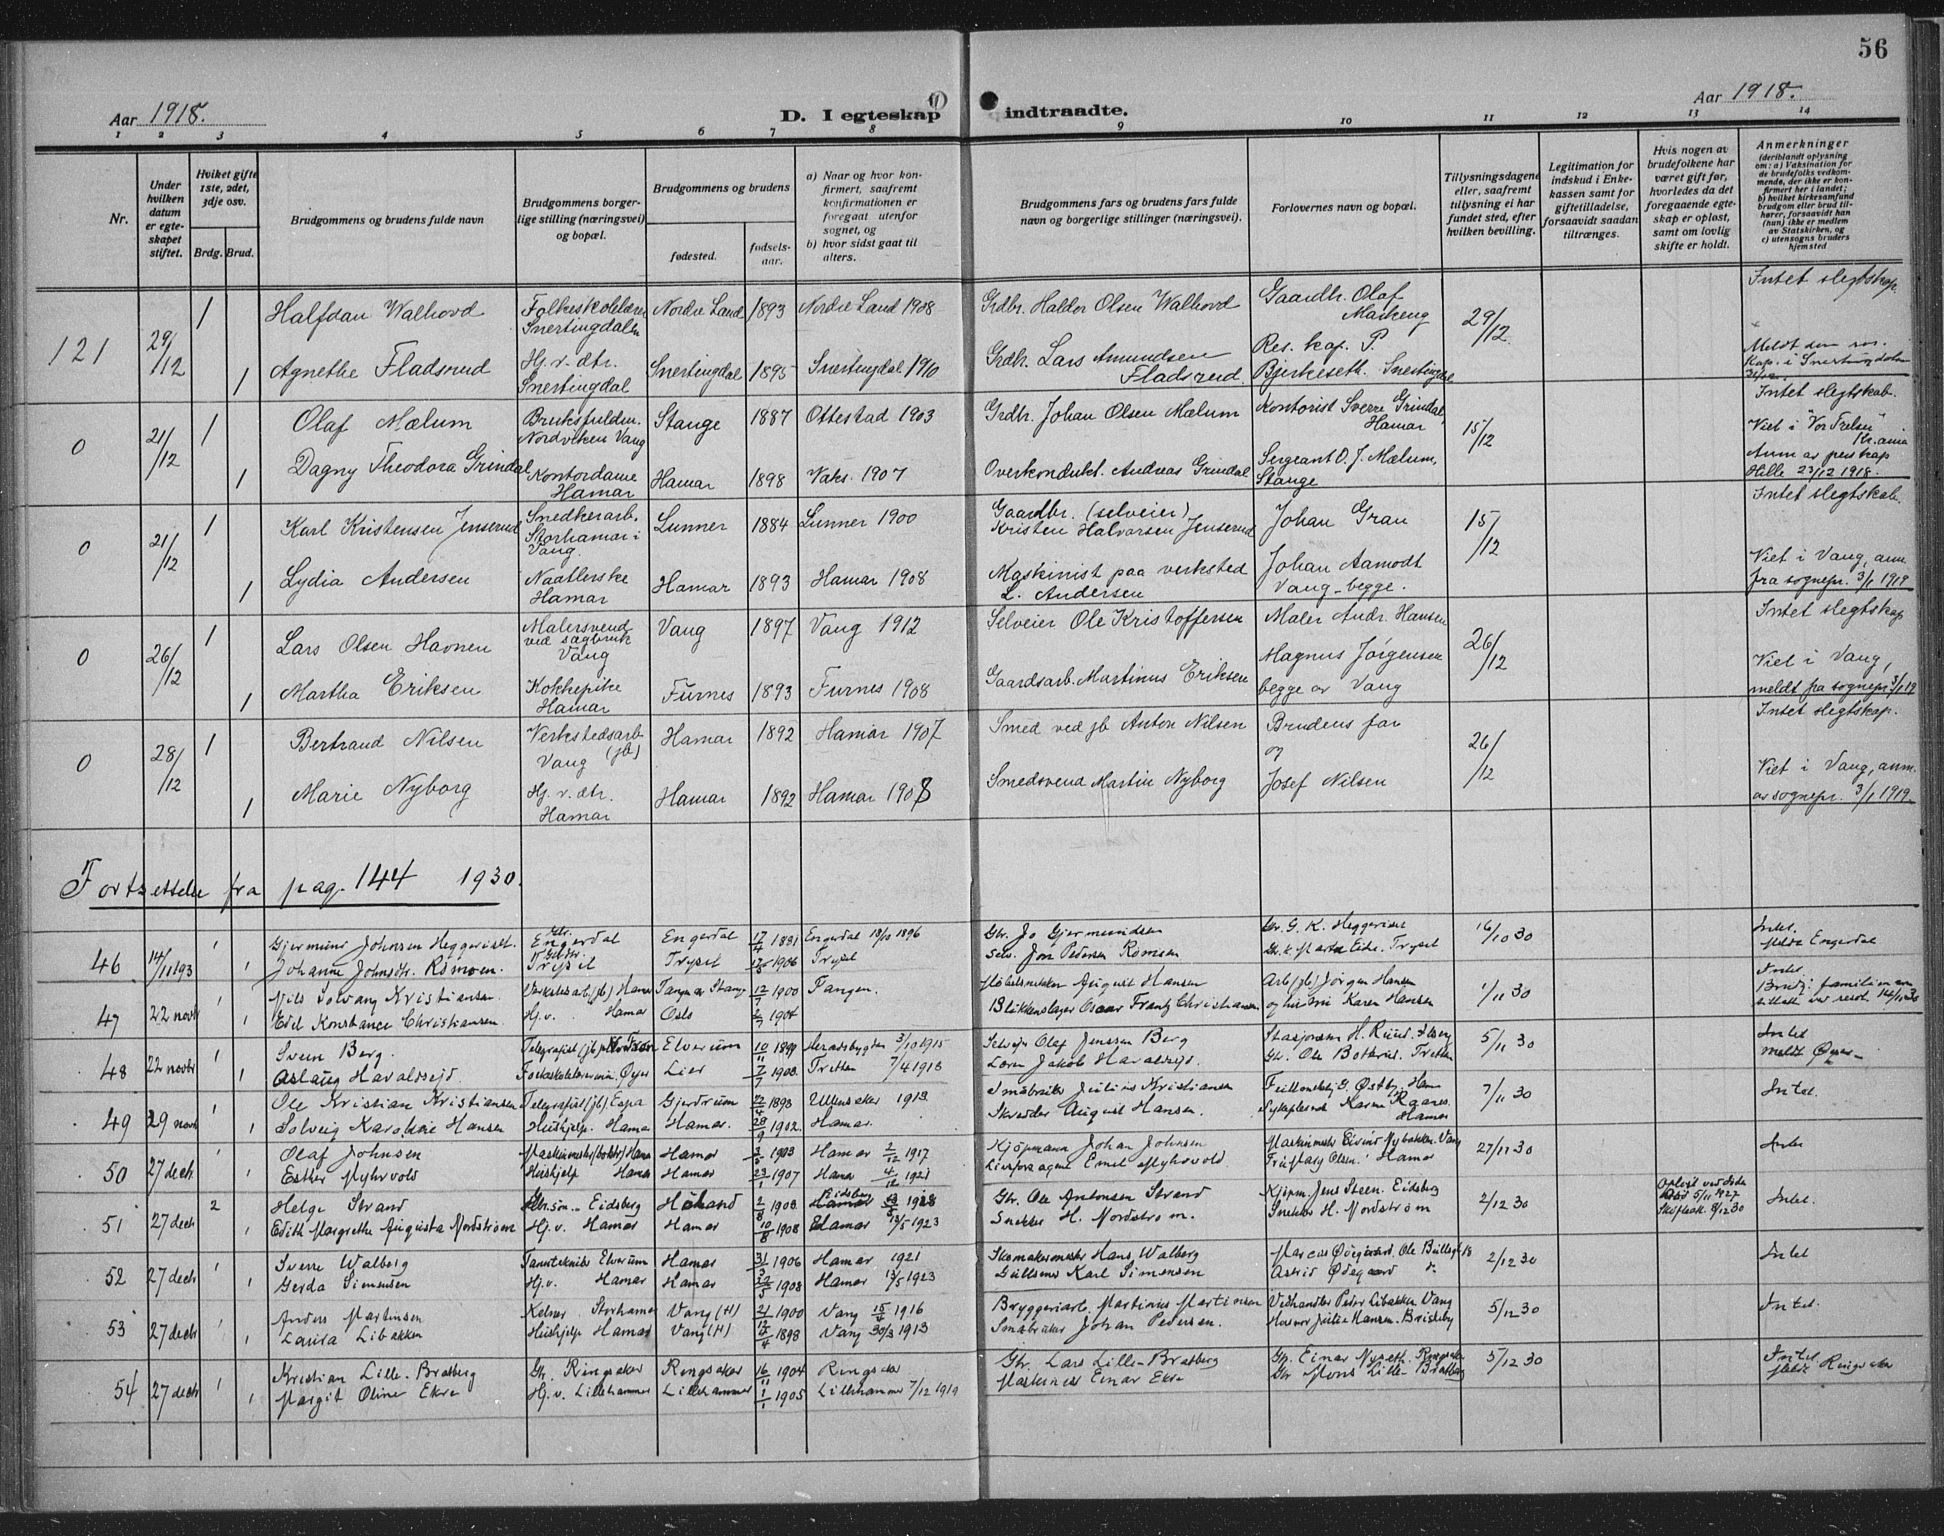 56
Aar 1918.
D. I egteskap indtraadte.
Aar 1918.
1 2 3 4 5 6 7 8 9 10 11 12 13 14
Nr.
Under hvilken datum er egteskapet stiftet.
Hviket gifte 1ste, 2det, 3dje osv.
Brdg. Brud.
Brudgommens og brudens fulde navn
Brudgommens borgerlige stilling (næringsvei) og bopæl.
Brudgommens og brudens
fødested.
fødselsaar.
a) Naar og hvor konfirmert, saafremt konfirmationen er foregaat utenfor sognet, og
b) hvor sidst gaat til alters.
Brudgommens fars og brudens fars fulde navn og borgerlige stillinger (næringsvei).
Forlovernes navn og bopæl.
Tillysningsdagene eller, saafremt tillysning ei har fundet sted, efter hvilken bevilling.
Legitimation for indskud i Enkekassen samt for giftetilladelse, forsaavidt saadan tiltrænges.
Hvis nogen av brudefolkene har været gift før, hvorledes da det foregaaende egteskap er opløst, samt om lovlig skifte er holdt.
Anmerkninger
(deriblandt oplysning om: a) Vaksination for de brudefolks vedkommende, der ikke er konfirmert her i landet; b) hvilket kirkesamfund brudgom eller brud tilhører, forsaavidt han (hun) ikke er medlem av Statskirken, og c) utensogns bruders hjemsted
121 29/12 1 Halfdan Walhovd Folkeskolelærer Snertingdalen Nordre Land 1893 Nordre Land 1908 Grdbr. Haldor Olsen Walhovd Gaardbr. Olaf Maskeng 29/12. Intet slegtskap.
1 Agnethe Fladsrud Hj. v. dtr. Snertingdal Snertingdal 1895 Snertingdal 1910 Grdbr. Lars Amundsen Fladsrud. Res. kap. P. Bjerkeseth. Snertingdal Meldt den res. kap. i Snertingdalen
0 21/12 1 Olaf Mælum Nordviken Vang Stange 1887 Ottestad 1903 Grdbr. Johan Olsen Mælum Kontorist Sverre Grindal, Hamar 15/12 Intet slegtskab.
1 Dagny Theodora Grindal Kontordame Hamar Hamar 1898 Vaks. 1907 Overkondukt. Andreas Grindal Sergeant O. J. Mælum, Stange Viet i "Vor Frelser" Kr.ania Anm av Hille 23/12 1918.
0 21/12 1 Karl Kristensen Jenserud Snedkerarb. Storhamar i Vang. Lunner 1884 Lunner 1900 Gaardbr. (selveier) Kristen Halvorsen Jenserud Johan Gran 15/12 Intet slegtskab.
1 Lydia Andersen Naatlerske Hamar Hamar 1893 Hamar 1908 Maskinist paa verksted L. Andersen Johan Aamodt Vang - begge. Viet i Vang, anm fra sognepr. 3/1 1919
0 26/12 1 Lars Olsen Havnen Malersvend ved sagbruk Vang Vang 1897 Vang 1912 Selveier Ole Kristoffersen Maler Andr. Hansen 26/12 Intet slegtskap
1 Martha Eriksen Kokkepike Hamar Furnes 1893 Furnes 1908 Gaardsarb. Martinus Eriksen Magnus Jørgensen begge av Vang Viet i Vang, meldt fra sognepr. 3/1 19
0 28/12 1 Bertrand Nilsen Verkstedsarb. (jb) Vang Hamar 1892 Hamar 1907 Smed ved jb Anton Nilsen Brudens far og 26/12 Intet slegtskap.
1 Marie Nyborg Hj. v. dtr. Hamar Hamar 1892 Hamar 1908 Smedsvend Martin Nyborg Josef Nilsen Viet i Vang, anm. av sognepr. 3/1 1919.
Fortsettelse fra pag. 144 1930.
46 14/11 193 1 Gjermund Johnsen Heggeriset. Gbr. Engerdal Engerdal 17/4 1881 Engerdal 13/10 1896 Gbr. Jo Gjermundsen Gbr. G. K. Heggeriset 16/10 30 Intet.
1 Johanne Johnsdtr. Rømoen. Trysil Trysil 1906 Trysil Selv. Jon Pedersen Rømoen Trysil Meldt Engerdal
47 22 novbr 1 Nils Solvang Kristiansen 12/7 1900 Tangen. August Hansen Arb (jb) Jørgen Hansen 1/11 30 Intet.
1 Edel Konstance Christiansen. Hj.v. Hamar Oslo 1904 Blikkenslager Oscar Frantz Christiansen og hustru Karen Hansen
48 22 novbr 1 Svein Berg. Elverum 10/11 1899 Heradsbygden 3/10 1915 Olaf Jenssen Berg 5/11 30 Intet
1 Aslaug Haraldseid. Øyer Lier 7/7 1903. Tretten 7/4 1918 Jakob Haraldseid. Tretten meldt Øyer
49 29 novbr 1 Ole Kristian Kristiansen Telegrafist (jb) Espa Gjerdrum 22/4 1893 Ullensaker 1913 Småbruker Julius Kristiansen 7/11 30 Intet.
1 Solveig Karoline Hansen Hushjelp. Hamar Hamar. 28/9 1902. Hamar. Skredder August Hansen. Hamar
50 27 decbr 1 Olaf Johnsen Hamar 1903 Hamar 2/12 1917 Kjøpmann Johan Johnsen Vang 27/11 30 Intet
1 Esther Myhrvold Hushjelp Hamar Hamar 23/1 1907 Hamar 4/12 1921 Emil Myhrvold Olsen. Hamar
51 27 decbr 2 Helge Strand Gbr.søn - Eidsberg 2/8 1903 Eidsberg 1918 Gbr. Ole Antonsen Strand Kjøpm. Jens Steen. Eidsberg 2/12 30 Intet.
1 Edith Margrethe Augusta Nordstrøm Hj.v. Hamar Hamar 10/8 1908 Hamar 13/5 1923 Snekker H. Nordstrøm. Snekker H. Nordstrøm
52 27 decbr 1 Sverre Walberg Elverum Hamar 31/3 1906 Hamar 1921 Skomakermester Hans Walberg 2/12 30 Intet
1 Gerda Simensen Hj.v. Hamar Hamar 1908 Hamar 13/5 1923 Gullsmed Karl Simensen Astrid Ødegaard
53 27 decbr 1 Anders Martinsen Kelner Storhamar Vang (H) 21/12 1900 Vang 15/4 1916 Bryggeriarb. Martinius Martinsen Vedhandler Peter Libakken Vang 5/12 30 Intet.
1 Laura Libakken Hushjelp Hamar Vang (H) 1898 Vang 30/3 1913 Småbruker Johan Pedersen. Julie Hansen. Briskeby
54 27 decbr 1 Kristian Lille-Bratberg Gbr. Ringsaker Ringsaker 16/11 1904 Ringsaker Gbr. Lars Lille-Bratberg Gbr. Einar Ringsaker 5/12 30 Intet
1 Margit Oline Ekre Hj.v. Lillehammer Lillehammer 1/1 1905 Lillehammer 7/12 1919 Maskinist Einar Ekre Gbr Mons Lille-Bratberg Meldt Ringsaker